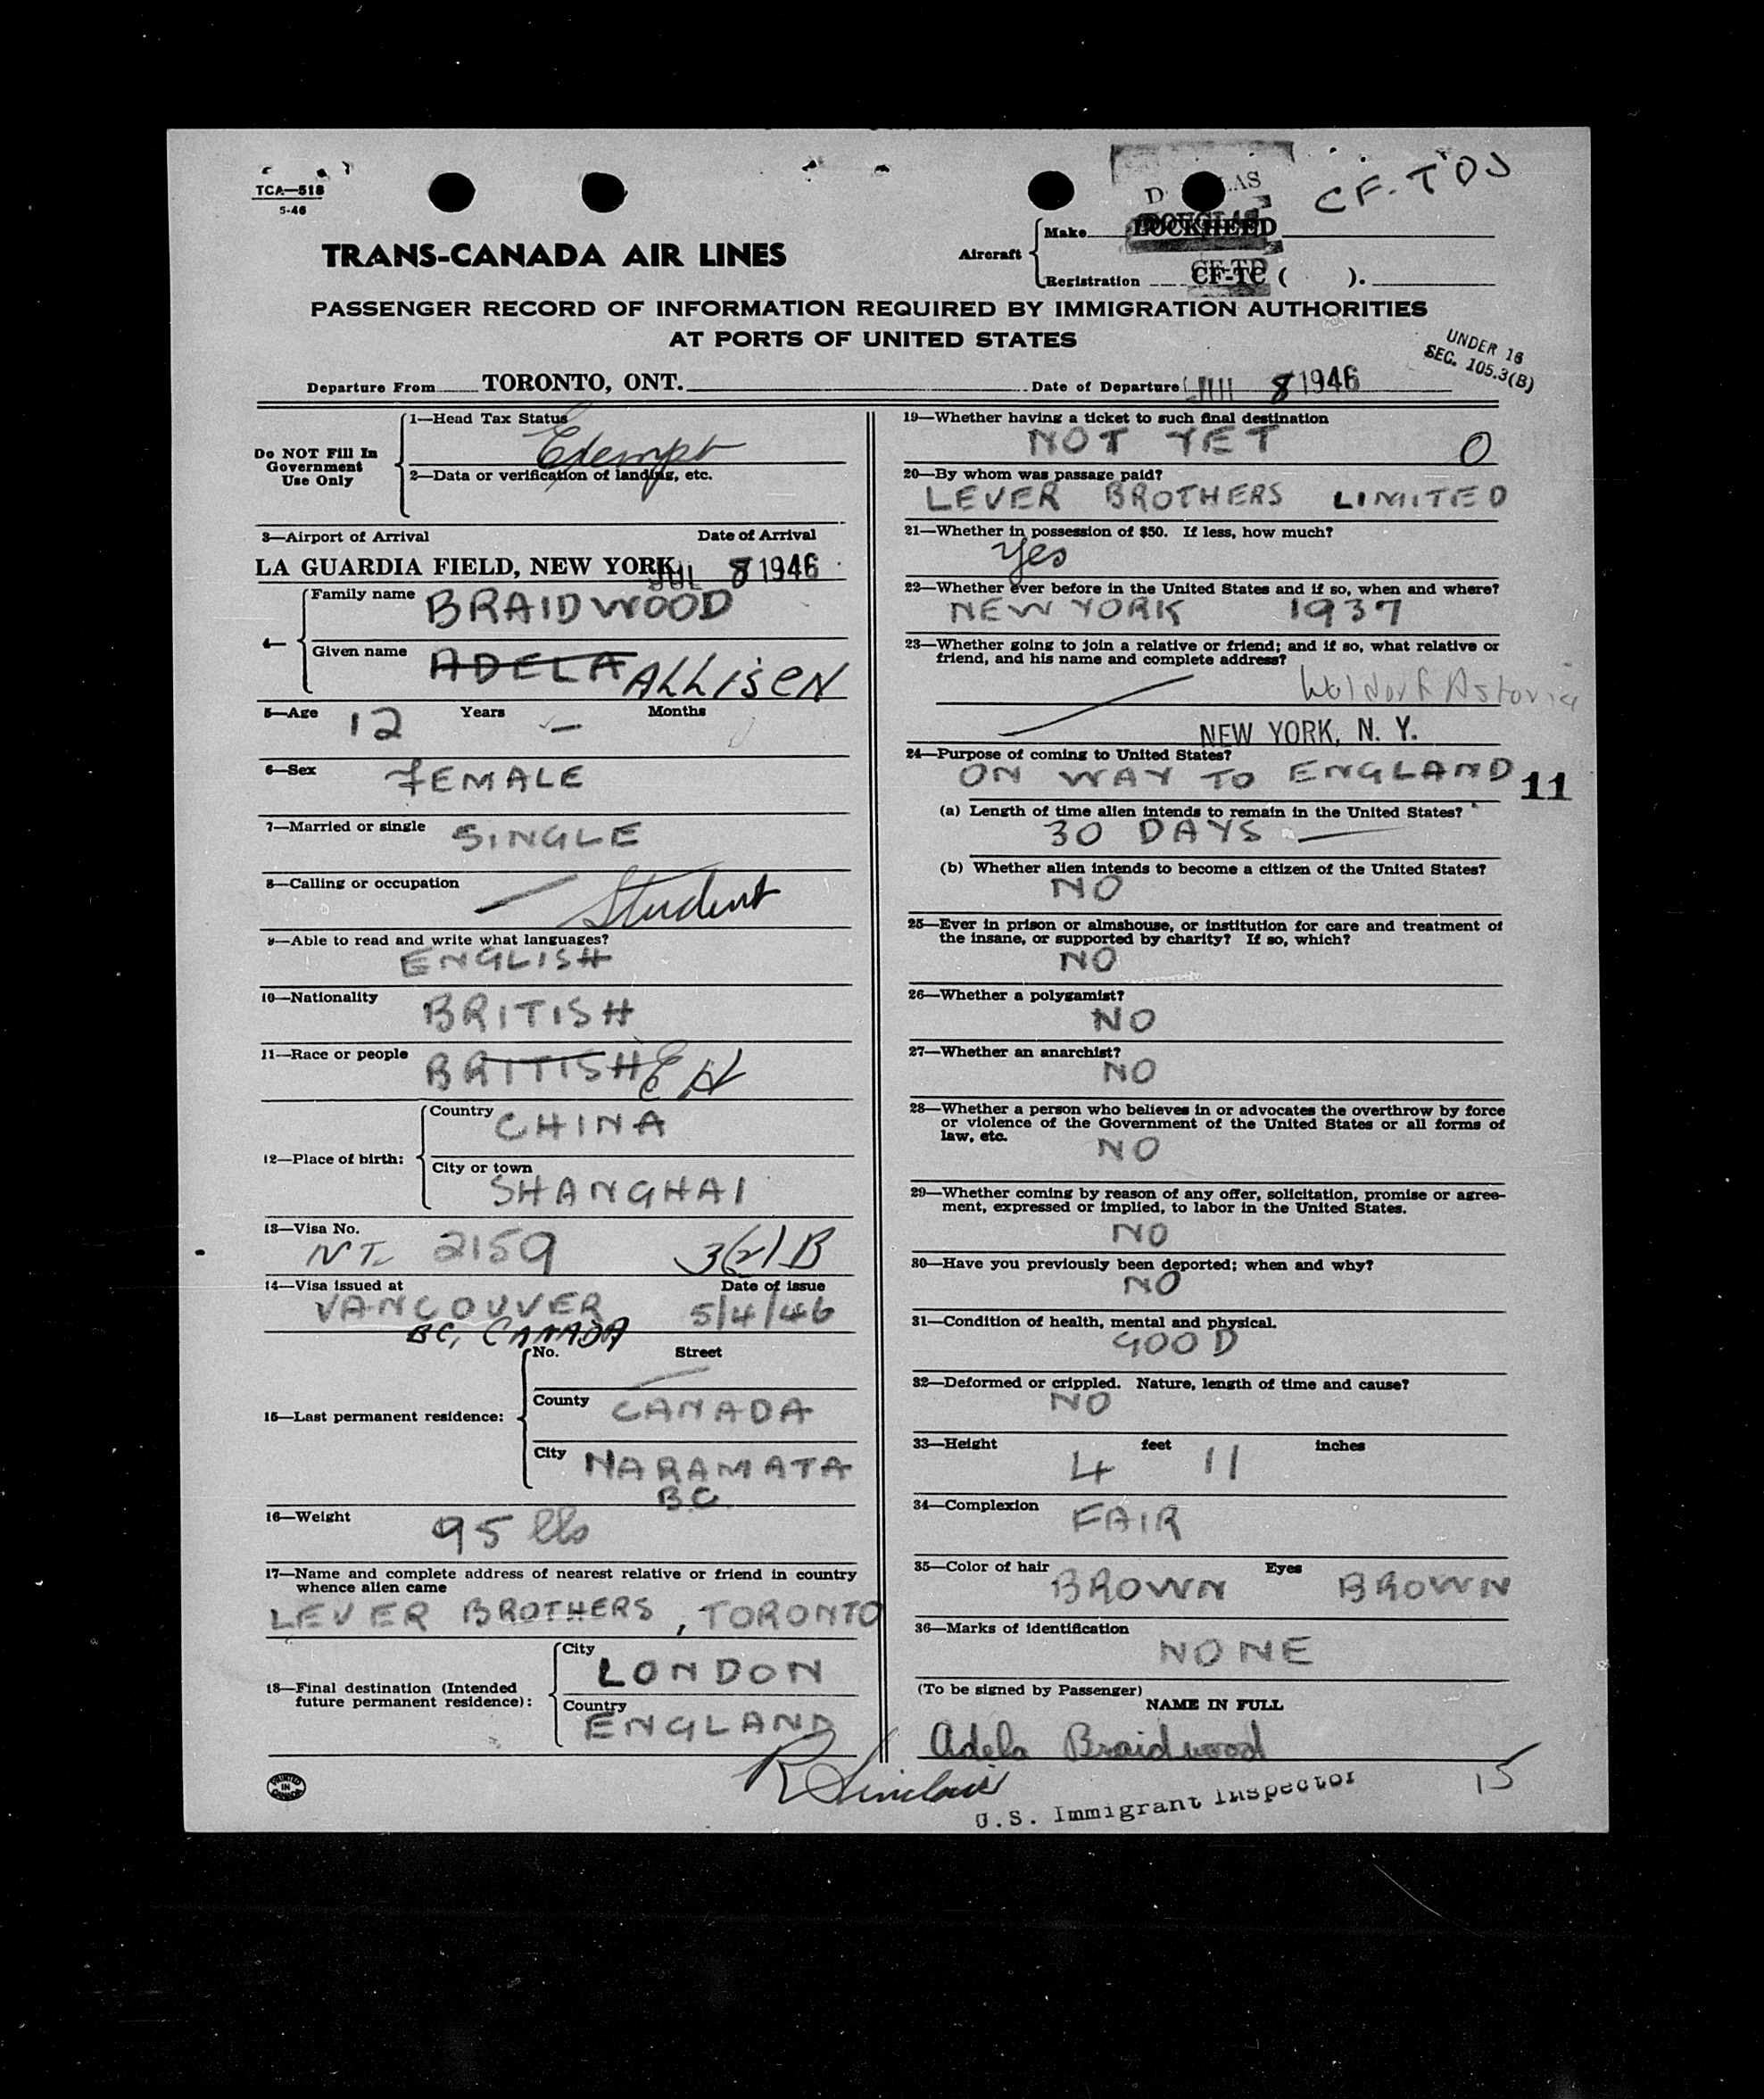 TCA—518
5-46
CF-TDJ
Aircraft
Make LOCKHEED
Registration CF-TC ( ).
TRANS-CANADA AIR LINES
PASSENGER RECORD OF INFORMATION REQUIRED BY IMMIGRATION AUTHORITIES
AT PORTS OF UNITED STATES
UNDER 16
SEC. 105.3(B)
Departure From TORONTO, ONT. Date of Departure 8 1946
Do NOT Fill In
Government
Use Only
1—Head Tax Status
Exempt
2—Data or verification of landing, etc.
3—Airport of Arrival Date of Arrival
LA GUARDIA FIELD, NEW YORK JUL 8 1946
4—
Family name BRAIDWOOD
Given name ADELA ALLISEN
5—Age 12 Years — Months
6—Sex FEMALE
7—Married or single SINGLE
8—Calling or occupation — Student
9—Able to read and write what languages?
ENGLISH
10—Nationality BRITISH
11—Race or people BRITISH
12—Place of birth:
Country CHINA
City or town
SHANGHAI
13—Visa No.
NT. 2159 3(2)B
14—Visa issued at Date of issue
VANCOUVER 5/4/46
BC, CANADA
15—Last permanent residence:
No. Street
—
County CANADA
City NARAMATA
B.C.
16—Weight 95 lbs
17—Name and complete address of nearest relative or friend in country
whence alien came
LEVER BROTHERS, TORONTO
18—Final destination (Intended
future permanent residence):
City
LONDON
Country
ENGLAND
19—Whether having a ticket to such final destination
NOT YET 0
20—By whom was passage paid?
LEVER BROTHERS LIMITED
21—Whether in possession of $50. If less, how much?
Yes
22—Whether ever before in the United States and if so, when and where?
NEW YORK 1937
23—Whether going to join a relative or friend; and if so, what relative or
friend, and his name and complete address?
Waldorf Astoria
NEW YORK, N. Y.
24—Purpose of coming to United States?
ON WAY TO ENGLAND 11
(a) Length of time alien intends to remain in the United States?
30 DAYS —
(b) Whether alien intends to become a citizen of the United States?
NO
25—Ever in prison or almshouse, or institution for care and treatment of
the insane, or supported by charity? If so, which?
NO
26—Whether a polygamist?
NO
27—Whether an anarchist?
NO
28—Whether a person who believes in or advocates the overthrow by force
or violence of the Government of the United States or all forms of
law, etc.
NO
29—Whether coming by reason of any offer, solicitation, promise or agree-
ment, expressed or implied, to labor in the United States.
NO
30—Have you previously been deported; when and why?
NO
31—Condition of health, mental and physical.
GOOD
32—Deformed or crippled. Nature, length of time and cause?
NO
33—Height 4 feet 11 inches
34—Complexion FAIR
35—Color of hair BROWN Eyes BROWN
36—Marks of identification
NONE
(To be signed by Passenger)
NAME IN FULL
Adela Braidwood
R Sinclair
U.S. Immigrant Inspector
15
PRINTED IN CANADA